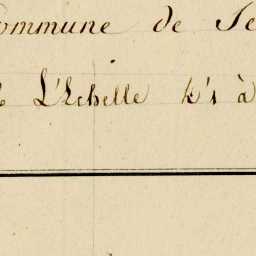 ommune de Se
L'Echelle k's à